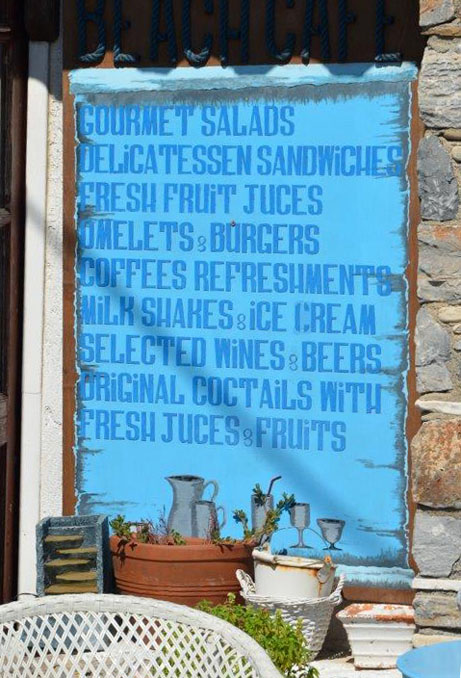 BEACH CAFE
GOURMET SALADS
DELiCATESSEN SANDWiCHES
FRESH FRUiT JUCES
OMELETS & BURGERS
COFFEES REFRESHMENTS
MiLK SHAKES & iCE CREAM
SELECTED WiNES & BEERS
ORiGiNAL COCTAiLS WiTH
FRESH JUCES & FRUiTS